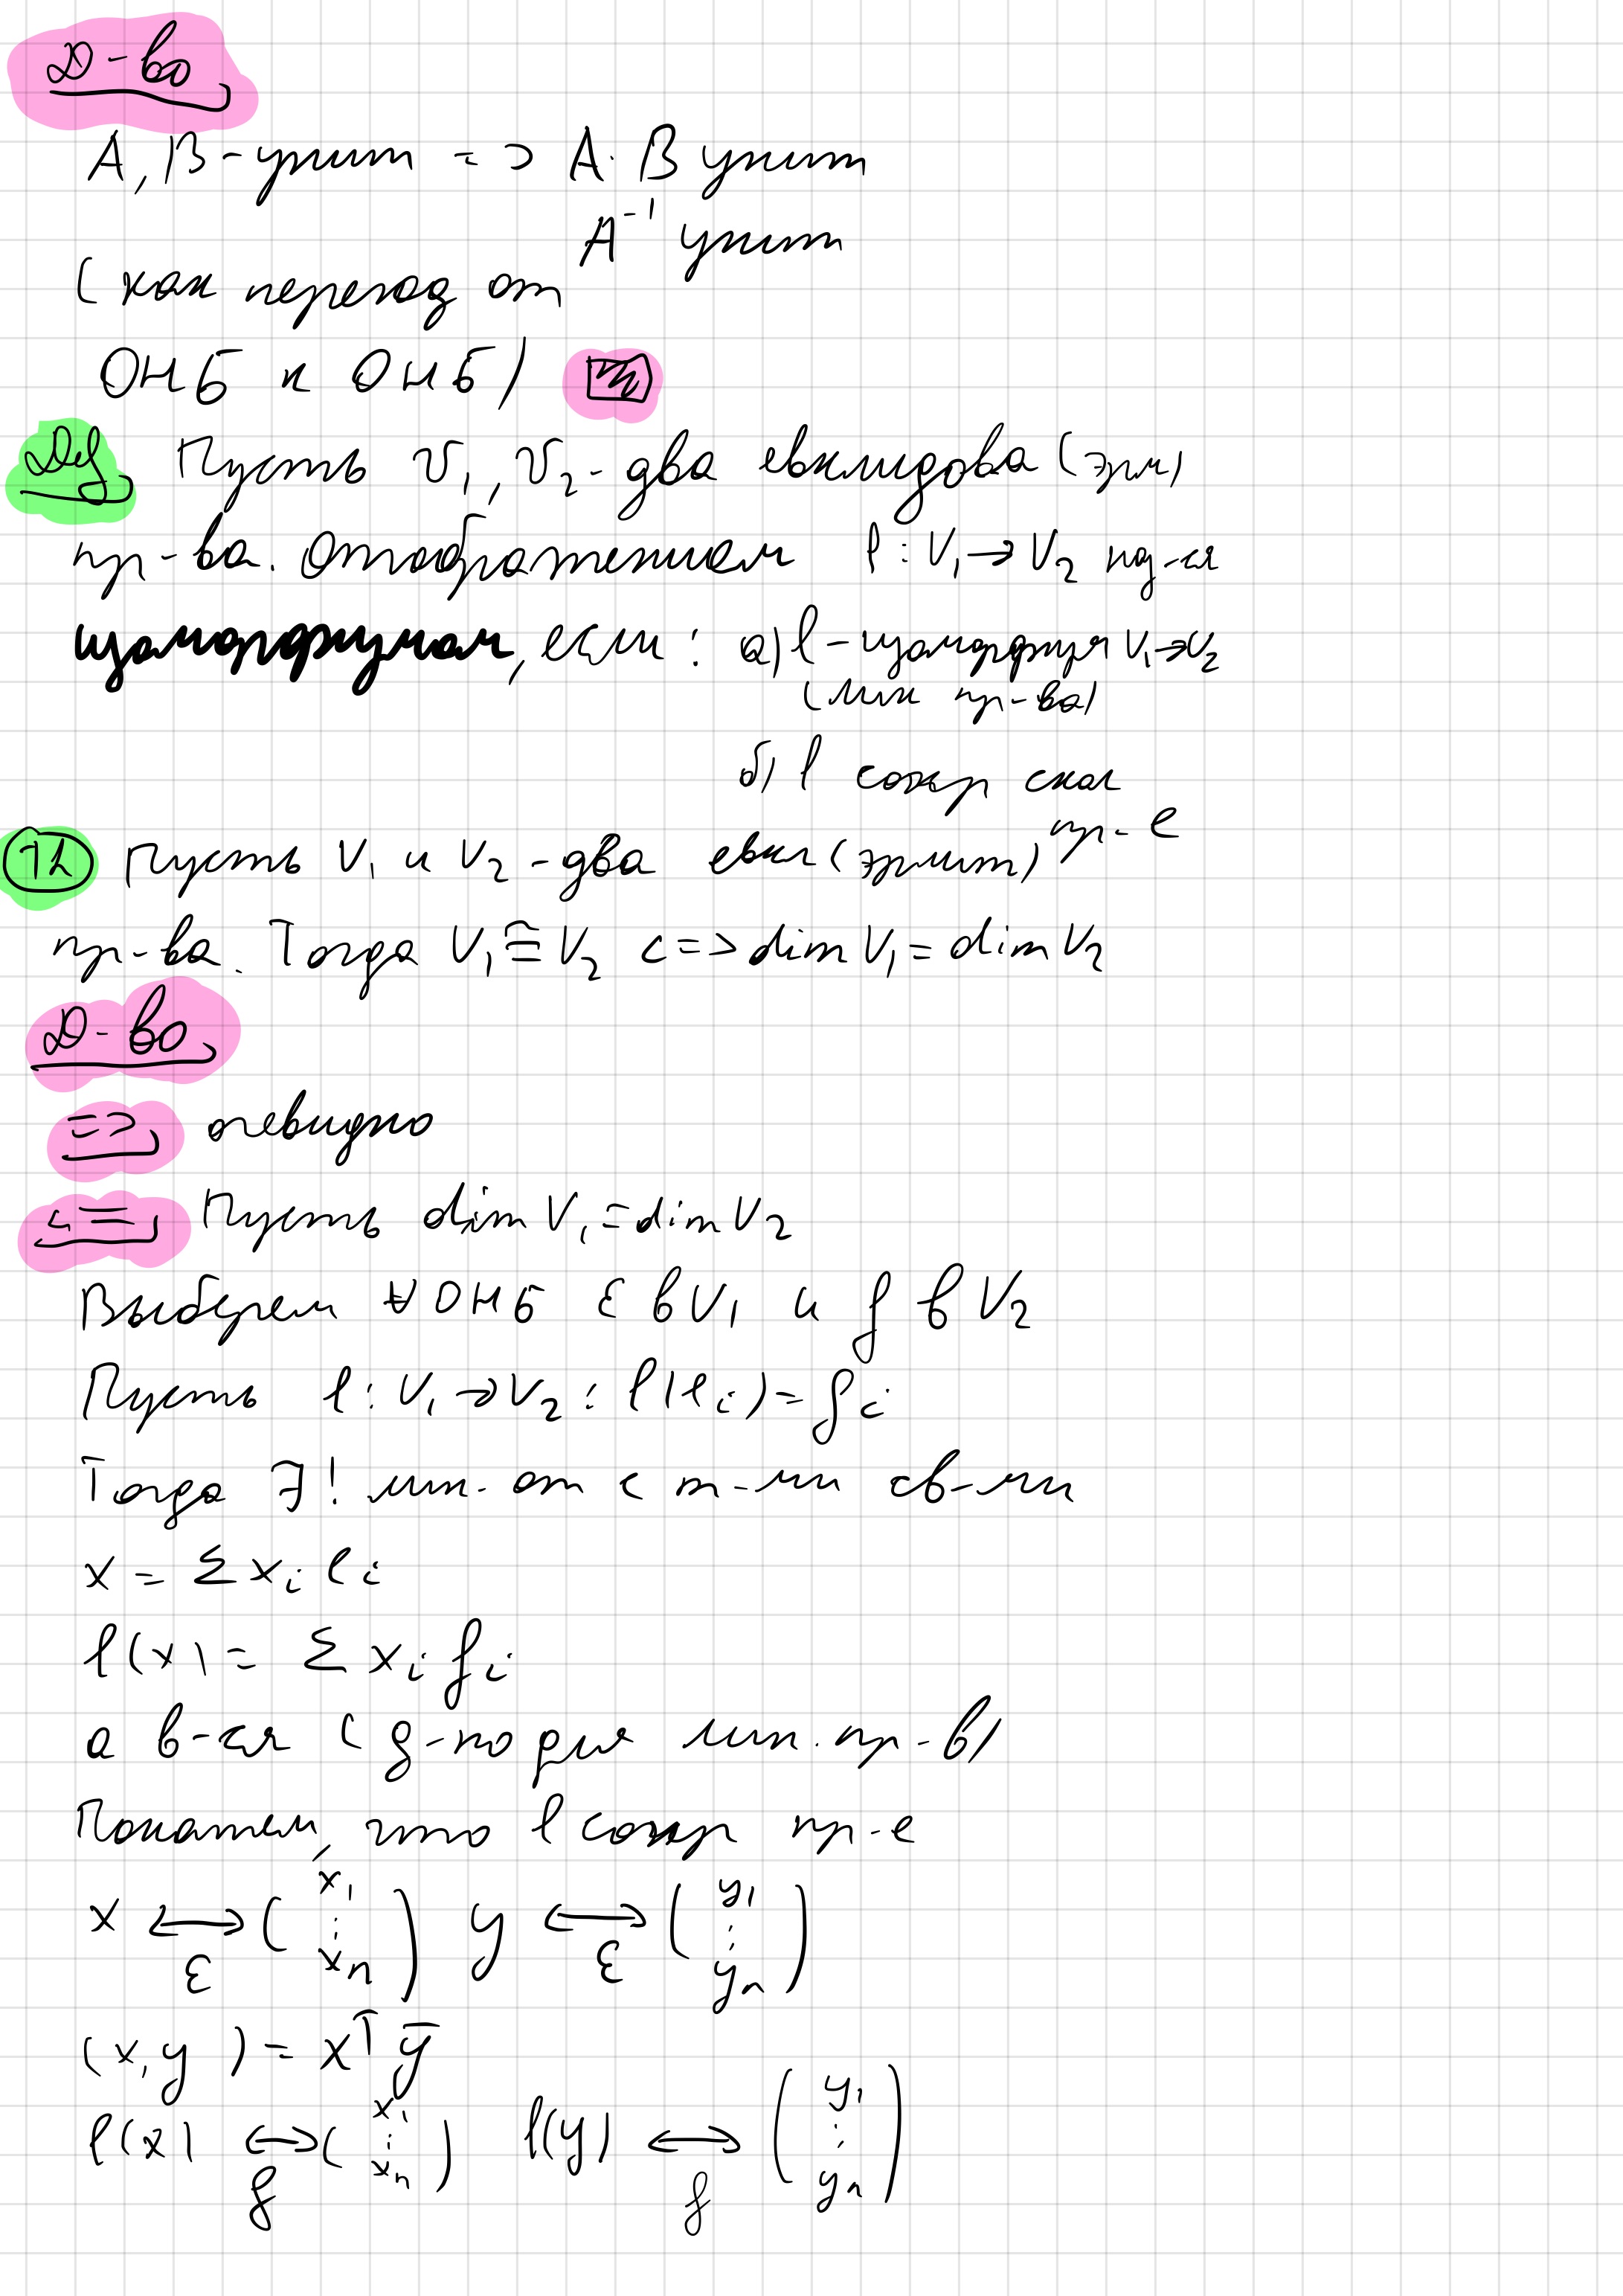 Д-во
A, B - унит => A·B унит
A⁻¹ унит
(как переход от
ОНБ к ОНБ)
Def Пусть V₁, V₂ - два евклидова (эрм)
пр-ва. Отображением l : V₁ → V₂ наз-ся
изоморфизмом, если: а) l - изоморфизм V₁ → V₂
(лин пр-ва)
б) l сохр скал
пр-е
Th Пусть V₁ и V₂ - два евкл (эрмит)
пр-ва. Тогда V₁ ≅ V₂ <=> dim V₁ = dim V₂
Д-во
=> очевидно
<= Пусть dim V₁ = dim V₂
Выберем ∀ ОНБ ε в V₁ и f в V₂
Пусть l : V₁ → V₂ : l(e_i) = f_i
Тогда ∃! лин. от с т-ми св-ми
x = Σ x_i e_i
l(x) = Σ x_i f_i
а в-ся (д-но для лин. пр-в)
Покажем, что l сохр пр-е
x ⟷_ε (x₁ ⋮ x_n) y ⟷_ε (y₁ ⋮ y_n)
(x, y) = xᵀ ȳ
l(x) ⟷_f (x₁ ⋮ x_n) l(y) ⟷_f (y₁ ⋮ y_n)